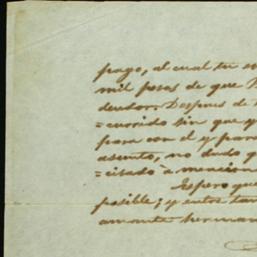 pago, al cual tu
mil pesos de que
deudor. Despues de
=currido sin que
para con el y para
asunto, no dudo
=citado á mencion
Espero que
posible; y entre tan
amante herman